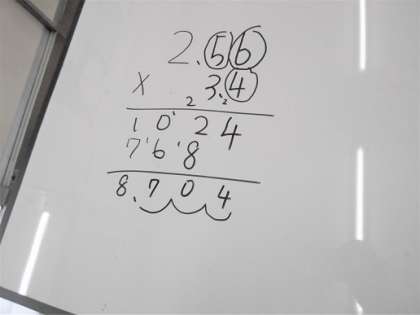 2.56
× 3.4
2 2
1 0 ' 2 4
7 ' 6 ' 8
8.7 0 4